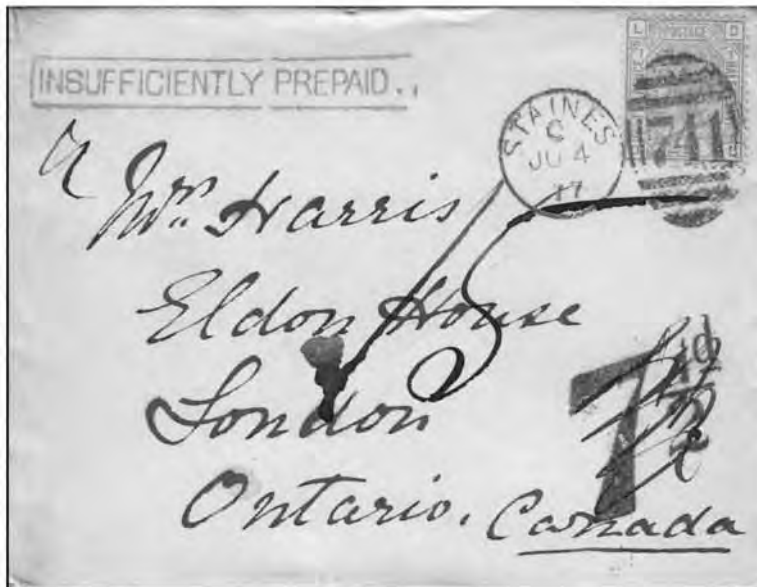 INSUFFICIENTLY PREPAID.
POSTAGE
L D
STAINES
C
JU 4
77
741
Mrs. Harris
Eldon House
London
Ontario. Canada
15
7d